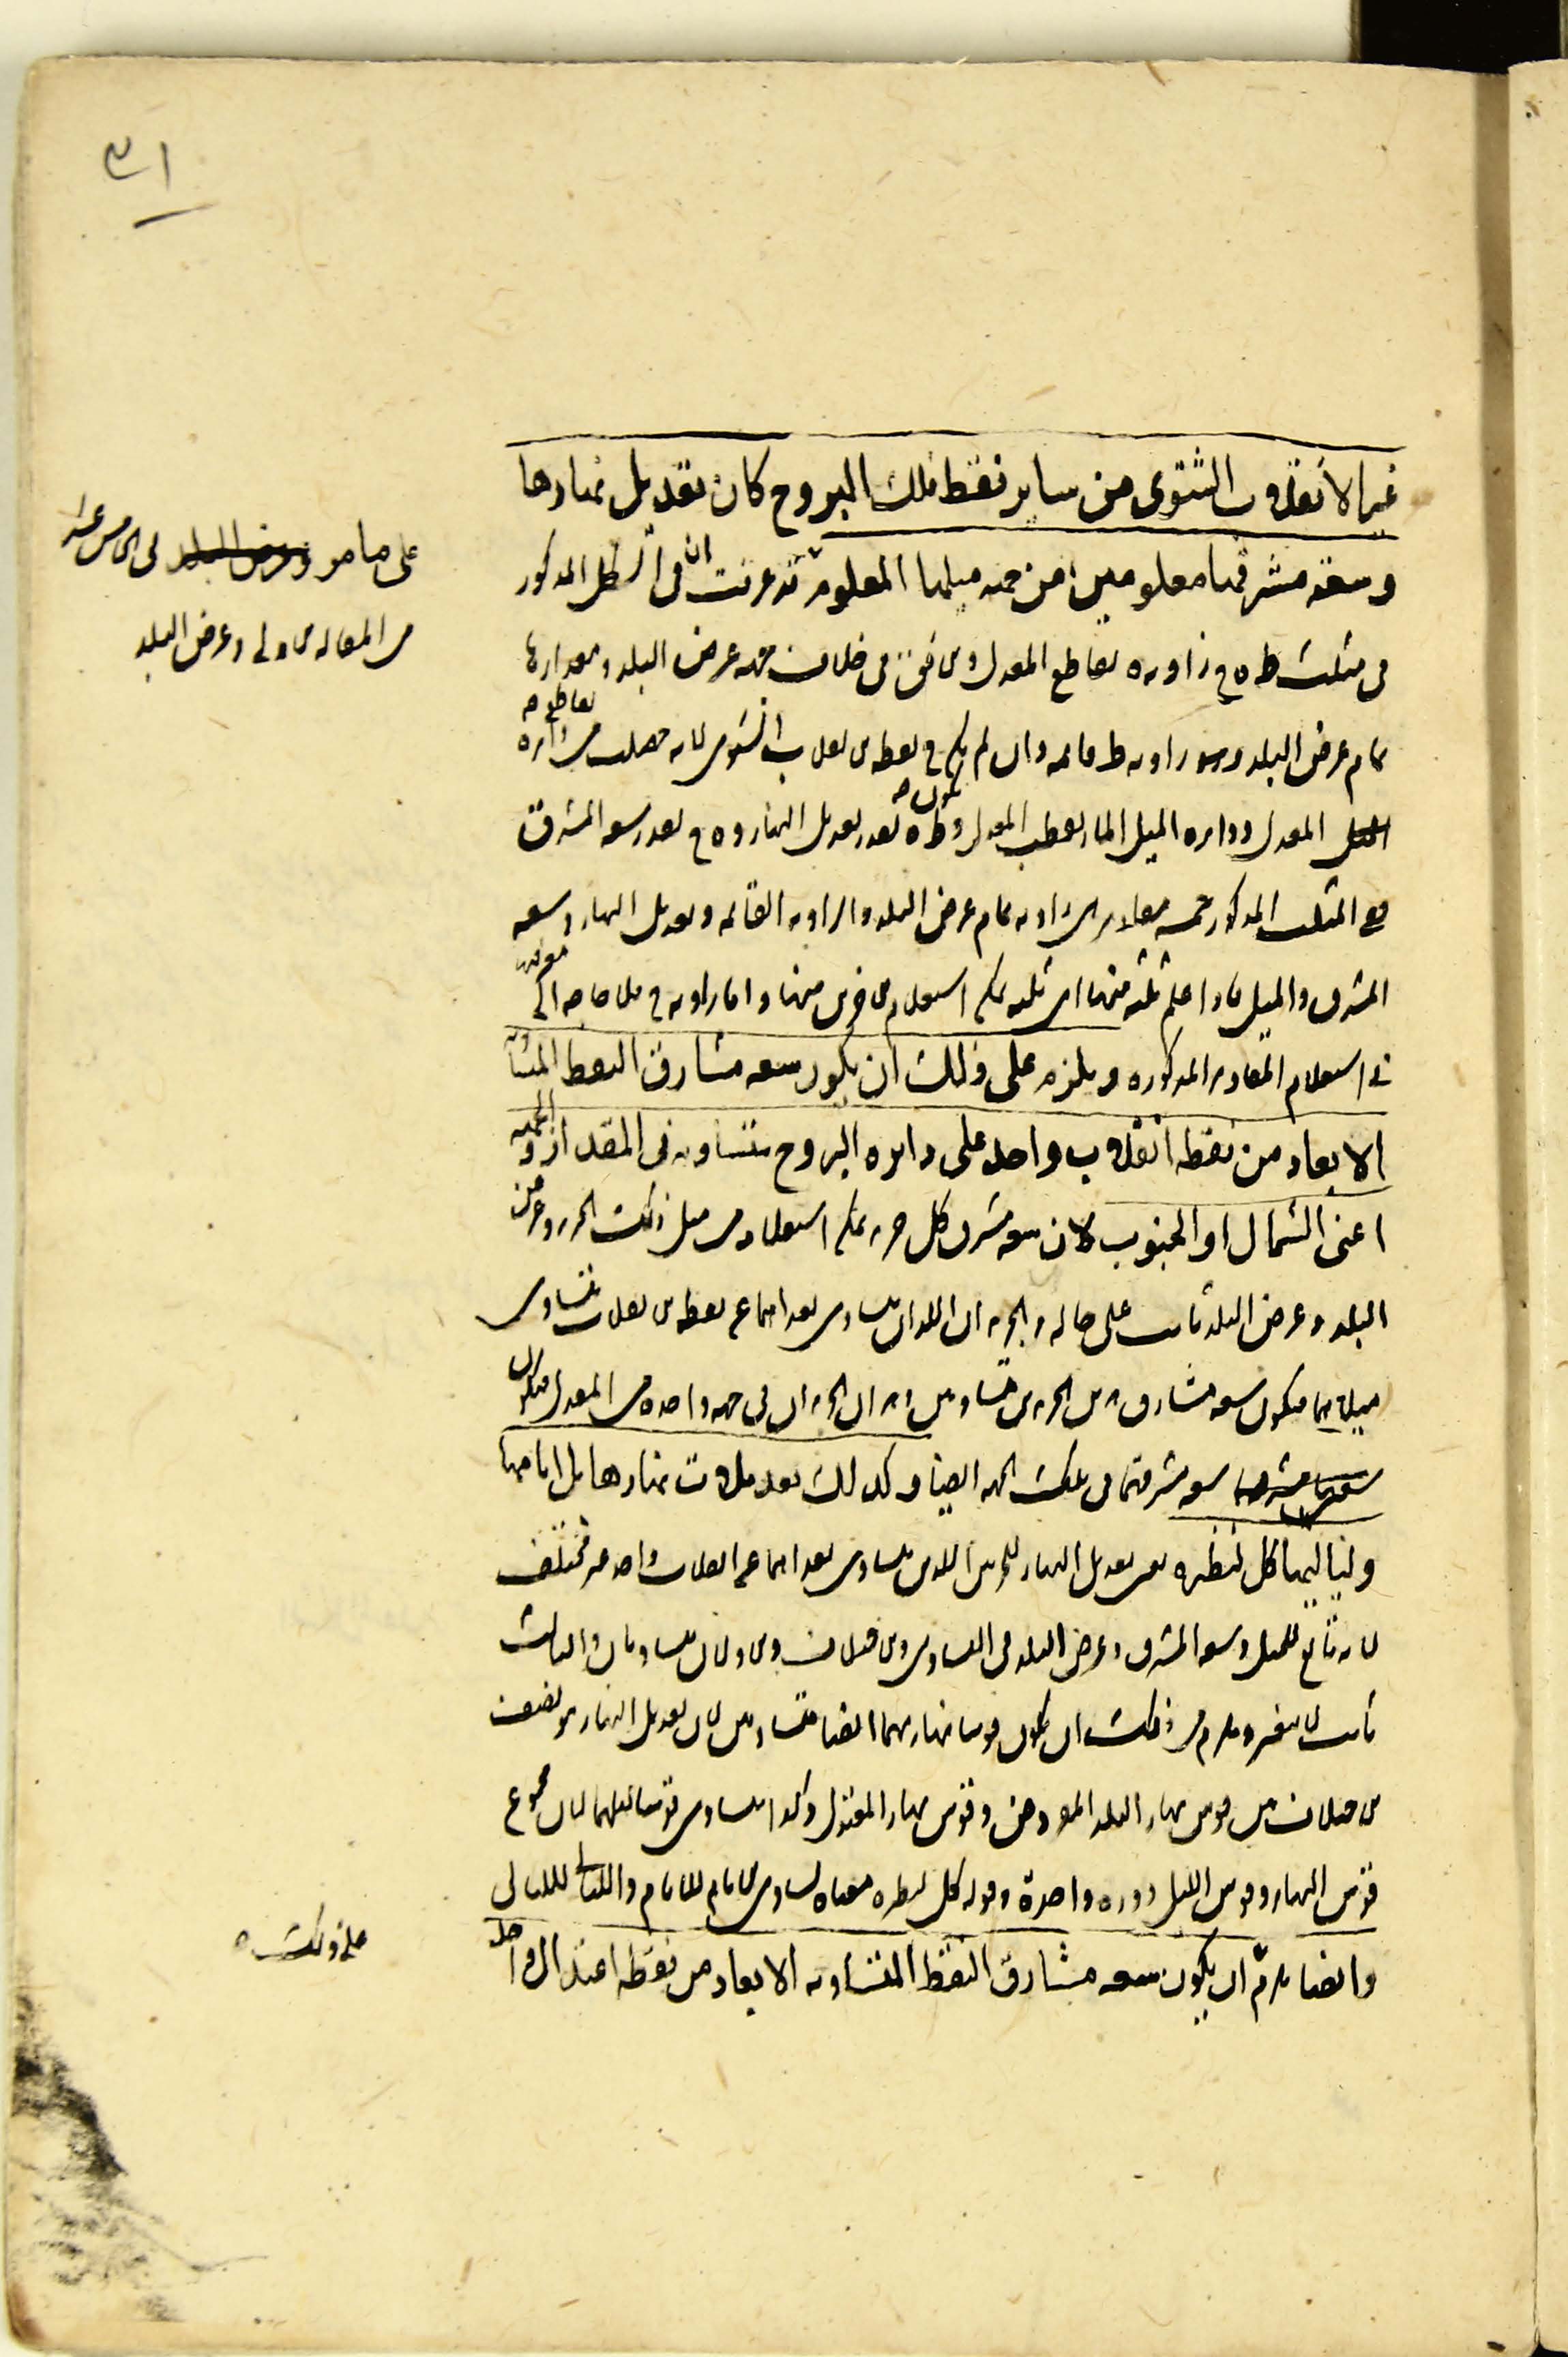 ٣١
غير الانقلاب الشتوى من ساير نقط فلك البروج كان تعديل نهارها
وسعة مشرقها معلومين من جهة ميلها المعلوم قد عرفت ان فى الشكل المذكور
فى مثلث ط ه ح زاوية ه تقاطع المعدل والافق فى خلاف جهة عرض البلد ومقدارها
تمام عرض البلد وزاوية ط قائمة وان لم يكن ح نقطة الانقلاب الشتوى لانه حصلت من تقاطع دائرة
المعدل ودايره الميل المار بقطب المعدل ويكون ط ه بقدر تعديل النهار و ه ح بقدر سعة المشرق
فمع المثلث المذكور خمسة مقادير الزاوية تمام عرض البلد والزاوية القائمة وتعديل النهار وسعة
المشرق والميل فاذا علم ثلثة منها اى ثلثة يمكن استعلام الاخرين منها واما زاوية ح فلا حاجة الى معرفتها
فى استعلام المقادير المذكوره ويلزم على ذلك ان يكون سعة مشارق النقط المتساوية
الابعاد من نقطة انقلاب واحد على دايره البروج متساوية فى المقدار والجهة
اعنى الشمال او الجنوب لان سعة مشرق كل جزء يمكن استعلامه من ميل ذلك الجزء وعرض
البلد وعرض البلد ثابت على حاله والجزءان اللذان يتساوى بعداهما عن نقطة الانقلاب يتساوى
ميلاهما فيكون سعة مشارق هذين الجزءين متساويين وهذان الجزءان فى جهة واحدة من المعدل فيكون
سعة مشرقهما فى تلك الجهة ايضا وكذلك تعديلات نهارها بل ايامها
ولياليها كل لنظيره يعنى تعديل النهار للجزءين اللذين يتساوى بعداهما عن انقلاب واحد غير مختلف
لانه تابع للميل وسعة المشرق وعرض البلد فى التساوى والاختلاف والاولان متساويان والثالث
ثابت لا يتغير ويلزم من ذلك ان يكون قوسا نهاريهما ايضا متساويين لان تعديل النهار هو نصف
الاختلاف بين قوس نهار البلد المفروض وقوس نهار المعتدل وكذا يتساوى قوسا ليلهما لان مجموع
قوس النهار وقوس الليل دورة واحدة وقوله كل لنظيره معناه تساوى الايام للايام والليالى لليالى
وايضا يلزم ان يكون سعة مشارق النقط المتساوية الابعاد من نقطة اعتدال واحد
على ما مر فى الخامس عشر
من المقالة الاولى وعرض البلد
على ذلك